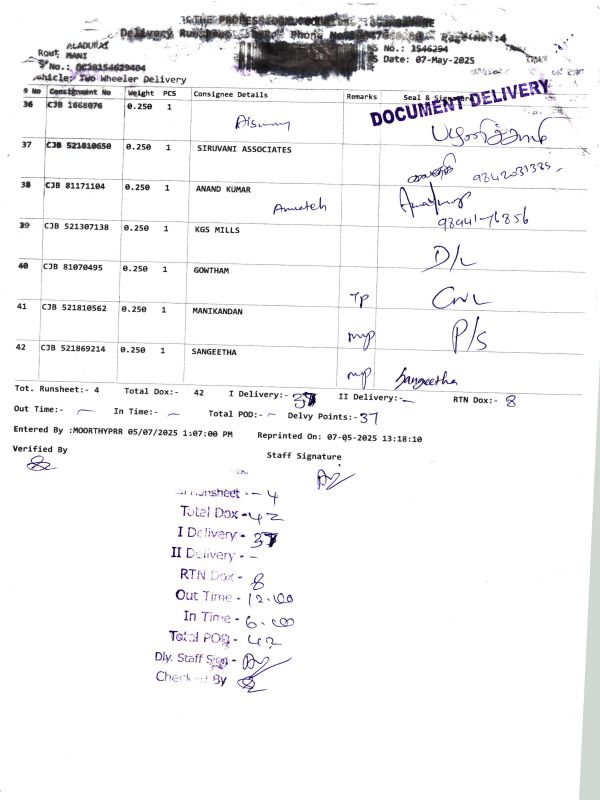 THE PROFESSIONAL
Delivery Runsheet Phone No Page No:4
ALADURAI
Rout MANI
S No.: 1546294
S Date: 07-May-2025
Vehicle: Two Wheeler Delivery
S No Consignment No Weight PCS Consignee Details Remarks Seal & Signature
DOCUMENT DELIVERY
36 CJB 1668076 0.250 1
37 CJB 521810650 0.250 1 SIRUVANI ASSOCIATES
38 CJB 81171104 0.250 1 ANAND KUMAR
98941-76856
39 CJB 521307138 0.250 1 KGS MILLS
D/L
40 CJB 81070495 0.250 1 GOWTHAM
TP CNL
41 CJB 521810562 0.250 1 MANIKANDAN
P/S
42 CJB 521869214 0.250 1 SANGEETHA
Sangeetha
Tot. Runsheet:- 4 Total Dox:- 42 I Delivery:- 37 II Delivery:- RTN Dox:- 8
Out Time:- In Time:- Total POD:- Delvy Points:- 37
Entered By :MOORTHYPRR 05/07/2025 1:07:00 PM Reprinted On: 07-05-2025 13:18:10
Verified By Staff Signature
Runsheet - 4
Total Dox - 42
I Delivery - 37
II Delivery - -
RTN Dox - 8
Out Time - 12.00
In Time - 6.00
Total POD - 42
Dly. Staff Sign -
Checked By